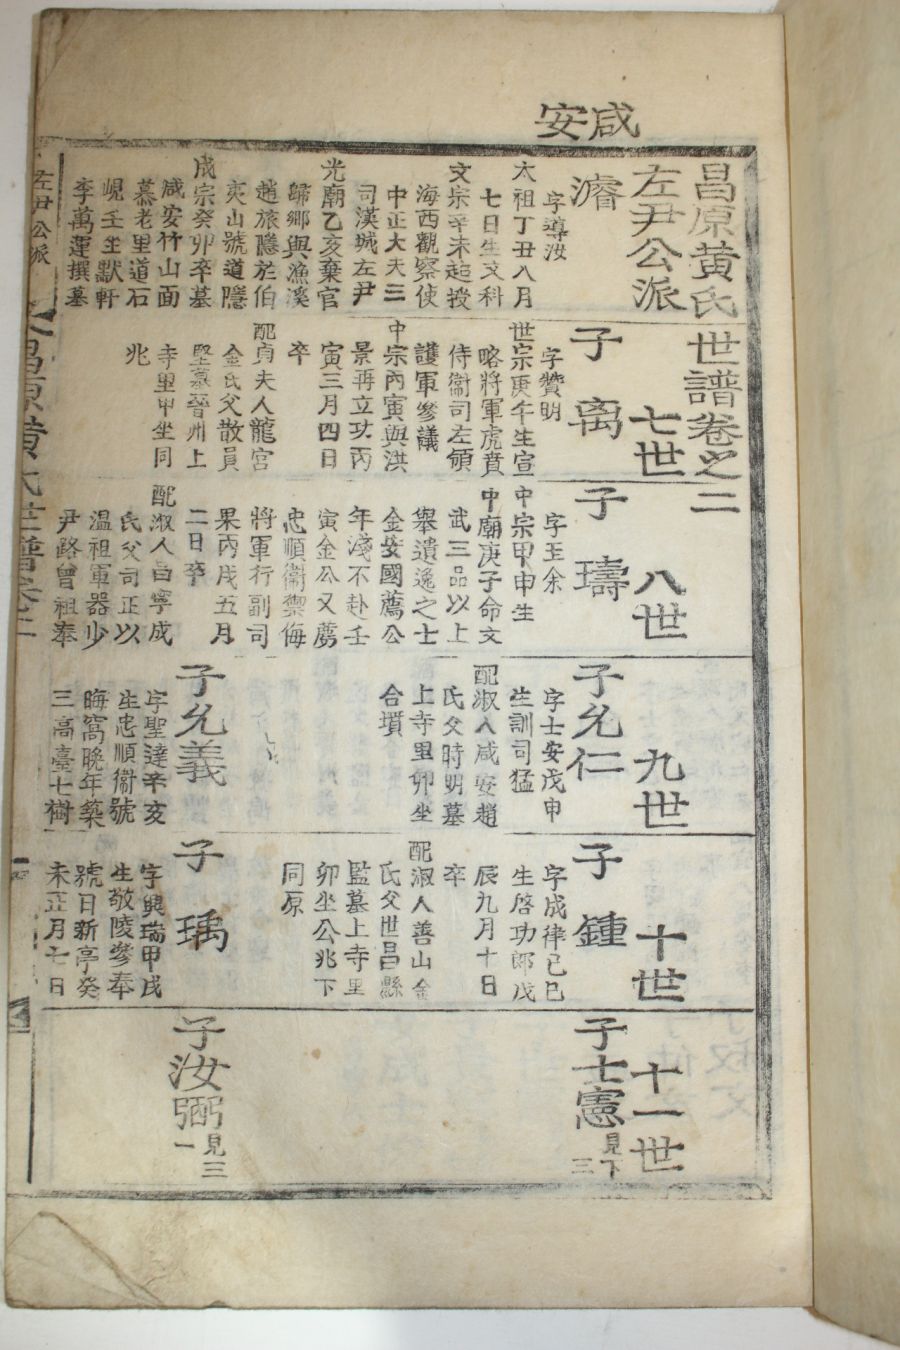 咸安
昌原黃氏世譜卷之二
左尹公派
七世
八世
九世
十世
十一世
濬
字導汝
太祖丁丑八月
七日生文科
文宗辛未起授
海西觀察使
中正大夫三
司漢城左尹
光廟乙亥棄官
歸鄉與漁溪
趙旅隱於伯
夷山號道隱
成宗癸卯卒墓
咸安竹山面
慕老里道石
峴壬坐默軒
李萬運撰墓
子
禼
字贊明
世宗庚午生宣
略將軍虎賁
侍衞司左領
護軍參議
中宗丙寅與洪
景再立功丙
寅三月四日
卒
配貞夫人龍宮
金氏父散員
堅墓晉州上
寺里甲坐同
兆
子
璹
字玉余
中宗甲申生
中廟庚子命文
武三品以上
舉遺逸之士
金安國薦公
年淺不赴壬
寅金公又薦
忠順衞禦侮
將軍行副司
果丙戌五月
二日卒
配淑人昌寧成
氏父司正以
溫祖軍器少
尹路曾祖奉
子允仁
字士安戊申
生訓司猛
配淑人咸安趙
氏父時明墓
上寺里卯坐
合墳
子允義
字聖達辛亥
生忠順衞號
晦窩晚年築
三高臺七樹
子
鍾
字成律己巳
生啓功郎戊
辰九月十日
卒
配淑人善山金
氏父世昌縣
監墓上寺里
卯坐公兆下
同原
子
瑀
字興瑞甲戌
生敬陵參奉
號日新亭癸
未正月七日
子士憲
見下
三
子汝弼
見三
一
左尹公派
昌原黃氏世譜卷之二